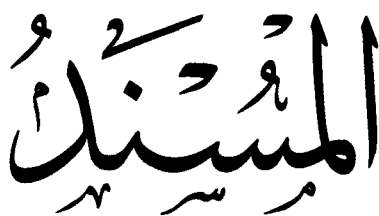 المُسْنَدُ